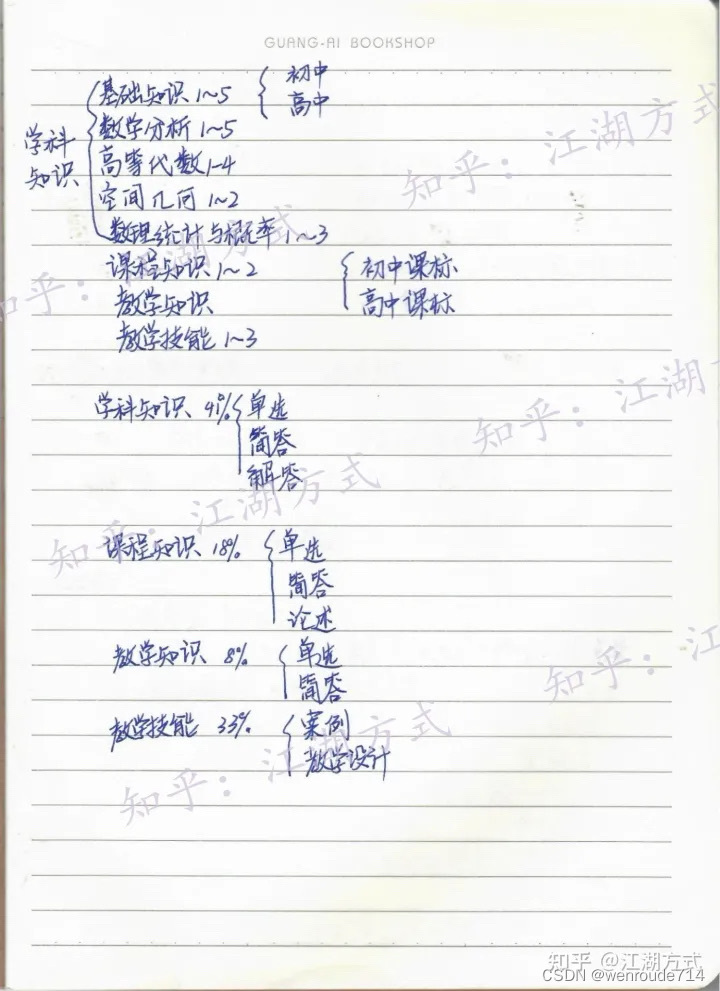 GUANG-AI BOOKSHOP
学科知识
基础知识 1~5 { 初中
高中
数学分析 1~5
高等代数 1-4
空间几何 1~2
数理统计与概率 1~3
课程知识 1~2 { 初中课标
高中课标
教学知识
教学技能 1~3
学科知识 41% { 单选
简答
解答
课程知识 18% { 单选
简答
论述
教学知识 8% { 单选
简答
教学技能 33% { 案例
教学设计
知乎：江湖方式
知乎：江湖方式
知乎：江湖方
知乎：江湖方式
知乎：江
知乎：江湖方式
知乎 @江湖方式
CSDN @wenroude714